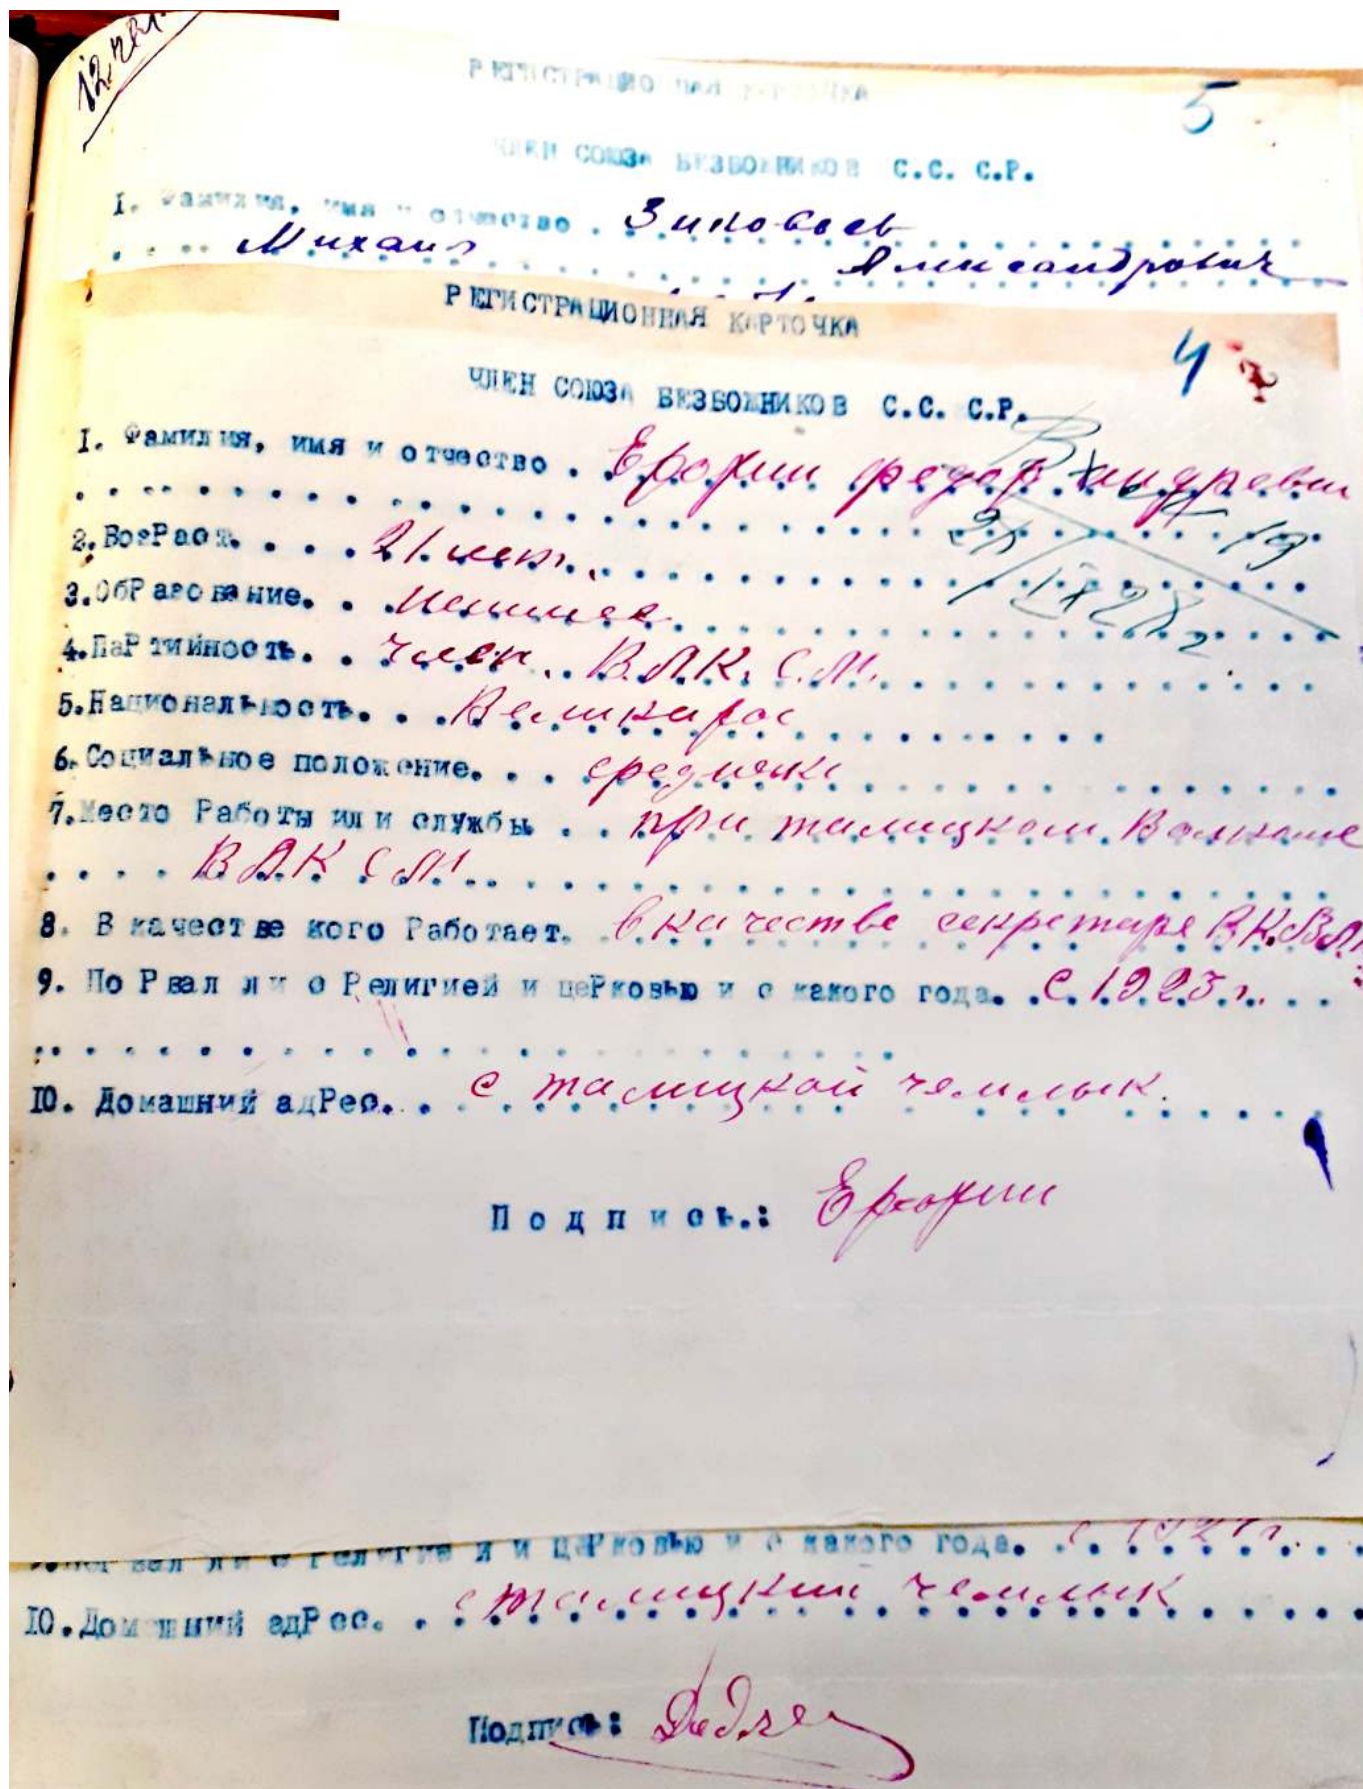 12 чел.
РЕГИСТРАЦИОННАЯ КАРТОЧКА
5
ЧЛЕН СОЮЗА БЕЗБОЖНИКОВ С.С. С.Р.
I. Фамилия, имя и отчество . Зиновьев
Михаил Александрович
РЕГИСТРАЦИОННАЯ КАРТОЧКА
4
ЧЛЕН СОЮЗА БЕЗБОЖНИКОВ С.С. С.Р.
I. Фамилия, имя и отчество . Ерофии федор андреевич
2. ВозРаст. . . . 21 лет.
3. ОбРазование. . низшее
4. ПаРтийность. . член В.Л.К.С.М.
5. Национальность. . Великарос
6. Социальное положение. . . средняк
7. Место Работы или службы . . при талицком Волкоме
. . . . ВЛКСМ
8. В качестве кого Работает. в качестве секретаря ВК.ВЛК
9. ПоРвал ли с Религией и цеРковью и с какого года. . С 1923 г.
10. Домашний адРес. . с талицкой чемлык.
Подпись.: Ерофии
9. ПоРвал ли с Религией и цеРковью и с какого года.
10. Домашний адРес. . с талицкий чемлык
Подпись: